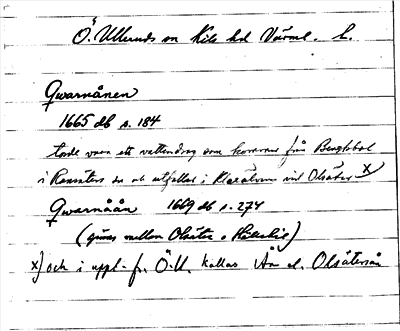 Ö. Ulleruds sn Kils hd Värml. l.
Qwarnånen
1665 db s. 184
torde vara ett vattendrag som kommer från
i Ransäters sn och utfaller i Klarälven vid Olsäter x)
Qwarnåån 1669 db s. 274
(gives mellan Olsäter o
x) och i uppl. fr. Ö.U. kallas Ån el. Olsätersån